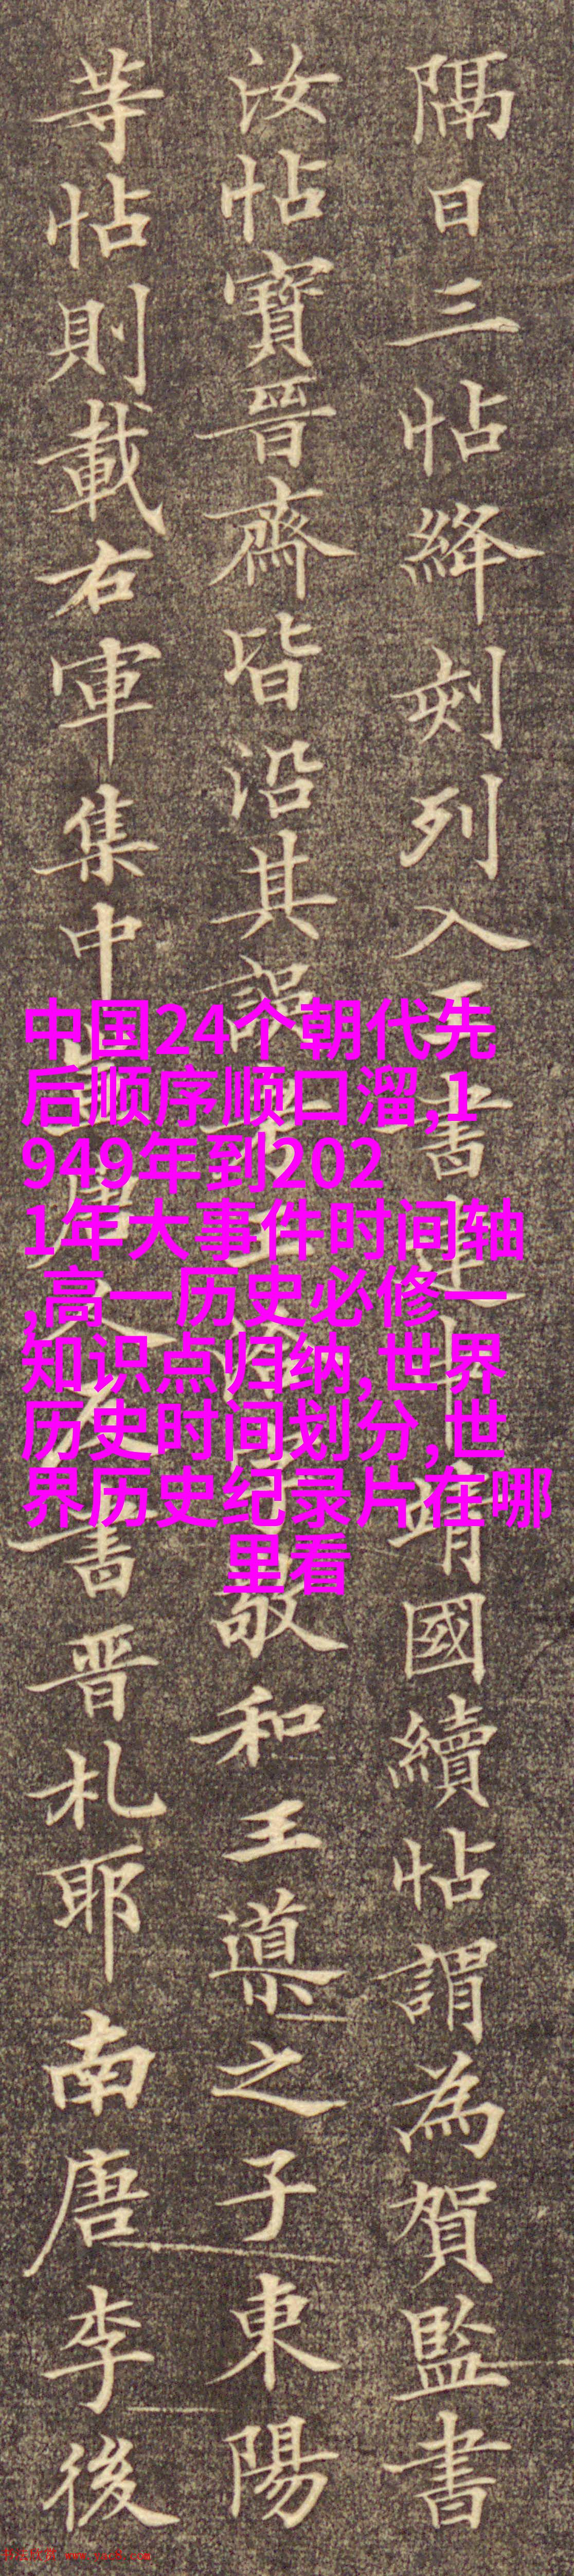 隔日三帖絳刻列入
書
靖國續帖謂為賀監書
汝帖寶晉齋皆沿其誤
敬和王導之子東陽
等帖則載右軍集中
唐
書晉札耶南唐李後
中国24个朝代先
后顺序顺口溜,1
949年到202
1年大事件时间轴
,高一历史必修一
知识点归纳,世界
历史时间划分,世
界历史纪录片在哪
里看